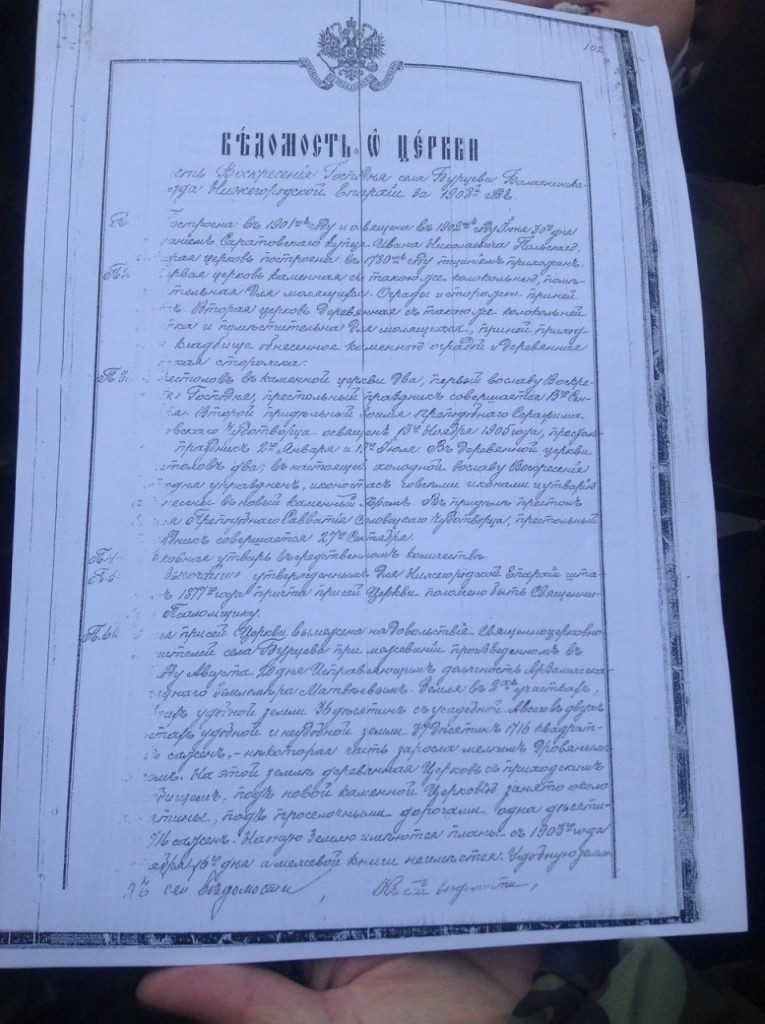 102
ВѢ́ДОМОСТЬ Ѿ ЦЕ́РКВИ
Воскресенія Господня села Бурцева Балахнинска-
Нижегородской Епархіи за 190
П.1. Построена въ 1901мъ году и освящена въ 1902мъ году Іюня 30го дня
Саратовскаго купца Ивана Николаевича
церковь построена въ 1780мъ году тщаніемъ прихожан.
П.2. Первая церковь каменная съ такою же колокольней, помѣ-
стительная для молящихся. Ограды и сторожки при ней
Вторая церковь деревянная съ такою же колокольней
и помѣстительна для молящихся, при ней приход-
кладбище обнесенное каменной оградой и деревянная
сторожка.
П.3. Престоловъ въ каменной церкви два, первый во славу Воскре-
Господня, престольный праздникъ совершается 13го Сен-
Второй придѣльный во имя Преподобнаго Серафима
Чудотворца освященъ 13го Ноября 1905 года, престоль-
праздникъ 2го Января и 19го Іюля. Въ деревянной церкви
два, въ настоящей холодной во славу Воскресенія
упраздненъ, иконостасъ со всѣми иконами и утварію
въ новый каменный Храмъ. Въ придѣлѣ престолъ
Преподобнаго Савватія Соловецкаго Чудотворца, престольный
совершается 27го Сентября.
П.4. утварь въ средственномъ количествѣ.
утвержденнымъ для Нижегородской Епархіи шта-
1877го года причта при сей Церкви положено быть Священни-
Псаломщику.
П.6. при сей Церкви вымежена на довольствіе Священноцерковно-
села Бурцева при межеваніи произведенномъ въ
Августа 20 дня Исправляющимъ должность Арзамасска-
Землемѣра Матвѣевымъ. Земля въ 2хъ участкахъ,
удобной земли 36 десятинъ съ усадебной. А всего въ двухъ
удобной и неудобной земли 37 десятинъ 1716 квадрат-
саженъ, - нѣкоторая часть заросла мелкимъ дровянымъ
На этой землѣ деревянная Церковь съ приходскимъ
подъ новой каменной Церковью занято около
подъ проселочными дорогами одна десяти-
716 саженъ. На оную землю имѣются планы съ 1903го года
16го дня а межевой книги не имѣется. Удобную землю
сей вѣдомости Къ сей вѣдомости,